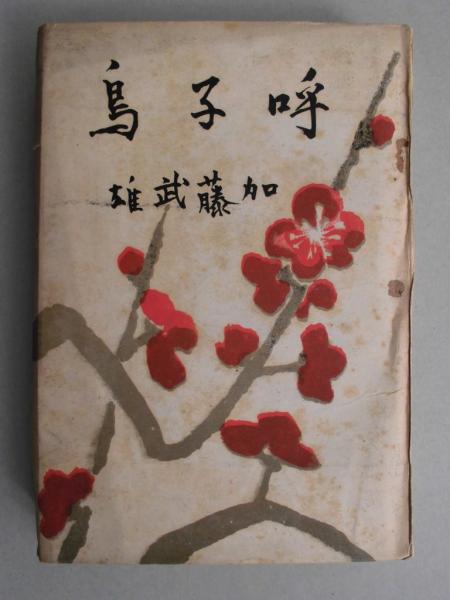 呼子鳥
加藤武雄